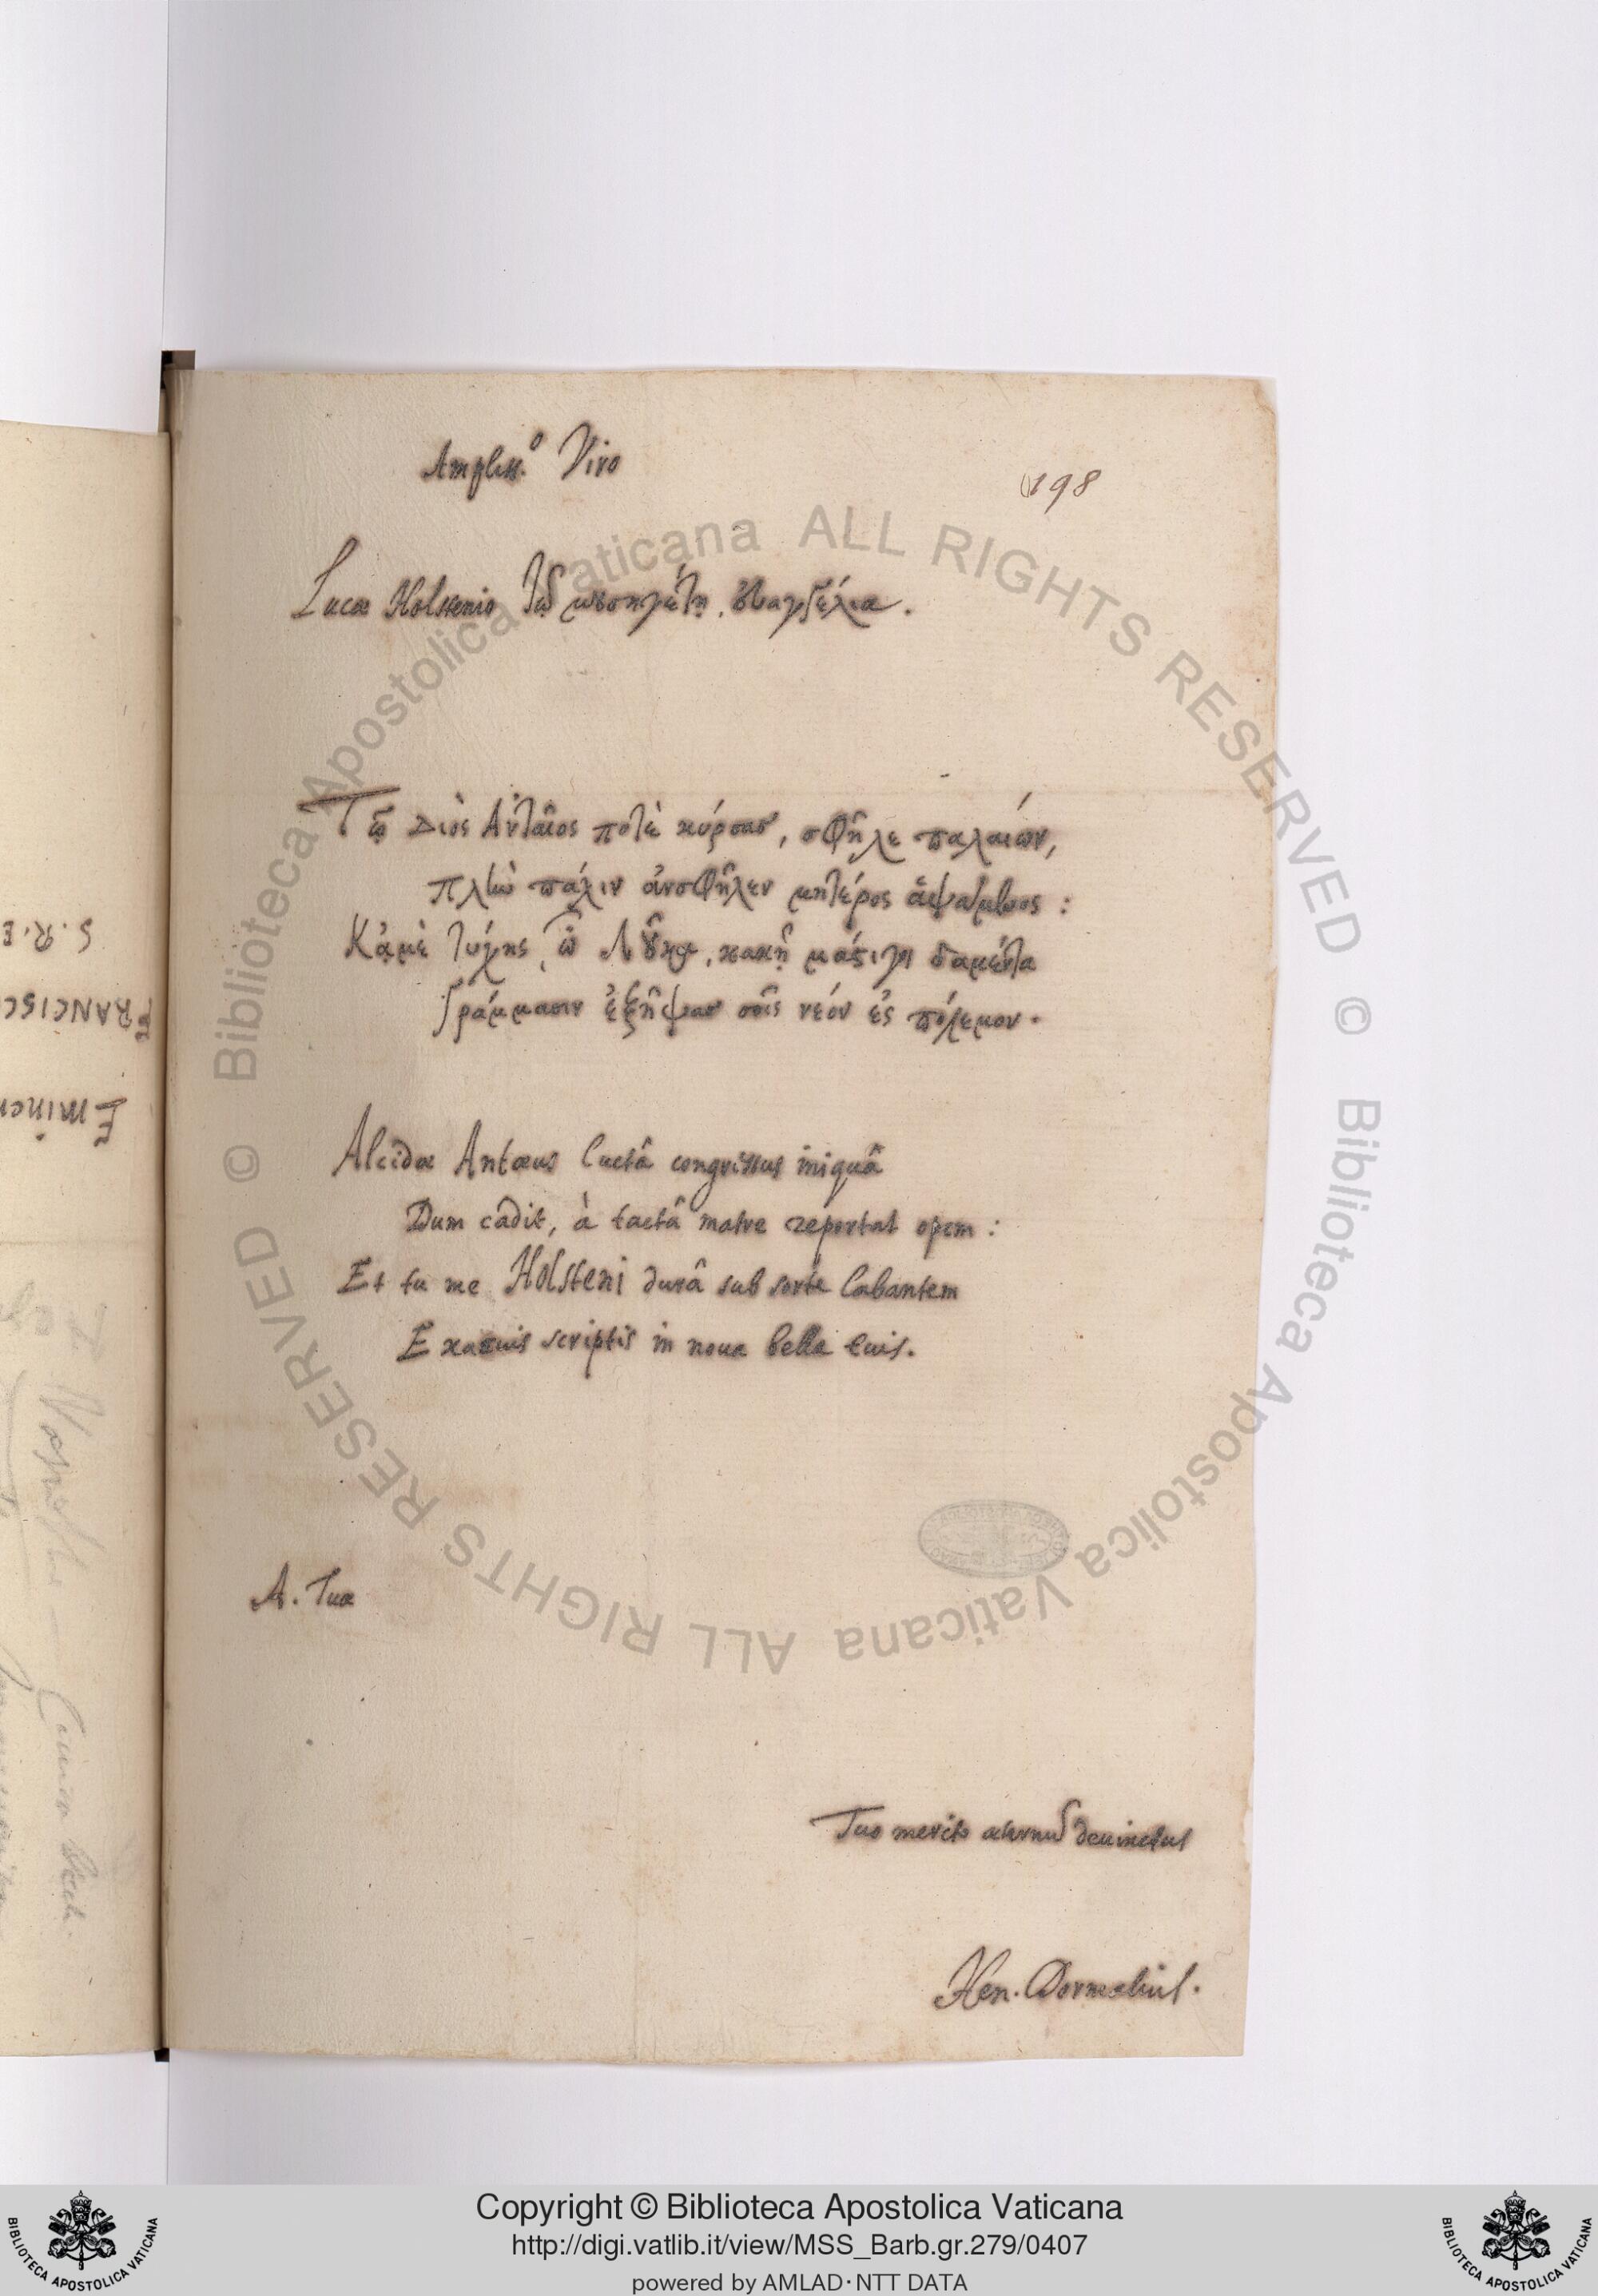 Ampliss.º Viro
198
Lucæ Holstenio Τῷ μουσηγέτῃ. εὐαγγέλια.
Τῷ Διὸς Ἀνταῖος ποτὲ κύρσας, σφῆλε παλαιών,
πλὴν πάλιν ἀνσφῆλεν μητέρος ἁψάμενος:
Κᾀμὲ τύχης, ὦ Λοῦκε, κακῇ μάστιγι δαμέντα
Γράμμασιν ἐξῆψας σοῖς νεόν ἐς πόλεμον.
Alcidæ Antæus luctâ congressus iniquâ
Dum cadit, à tactâ matre reportat opem:
Et tu me Holsteni durâ sub sorte labantem
Exacuis scriptis in noua bella tuis.
A. Tuæ
Tuo merito æternum deuinctus
Hen. Dormalius.
S. R. E
FRANCISC
Eminen
Copyright © Biblioteca Apostolica Vaticana
http://digi.vatlib.it/view/MSS_Barb.gr.279/0407
powered by AMLAD·NTT DATA
BIBLIOTECA APOSTOLICA VATICANA
BIBLIOTECA APOSTOLICA VATICANA
© Biblioteca Apostolica Vaticana ALL RIGHTS RESERVED
© Biblioteca Apostolica Vaticana ALL RIGHTS RESERVED